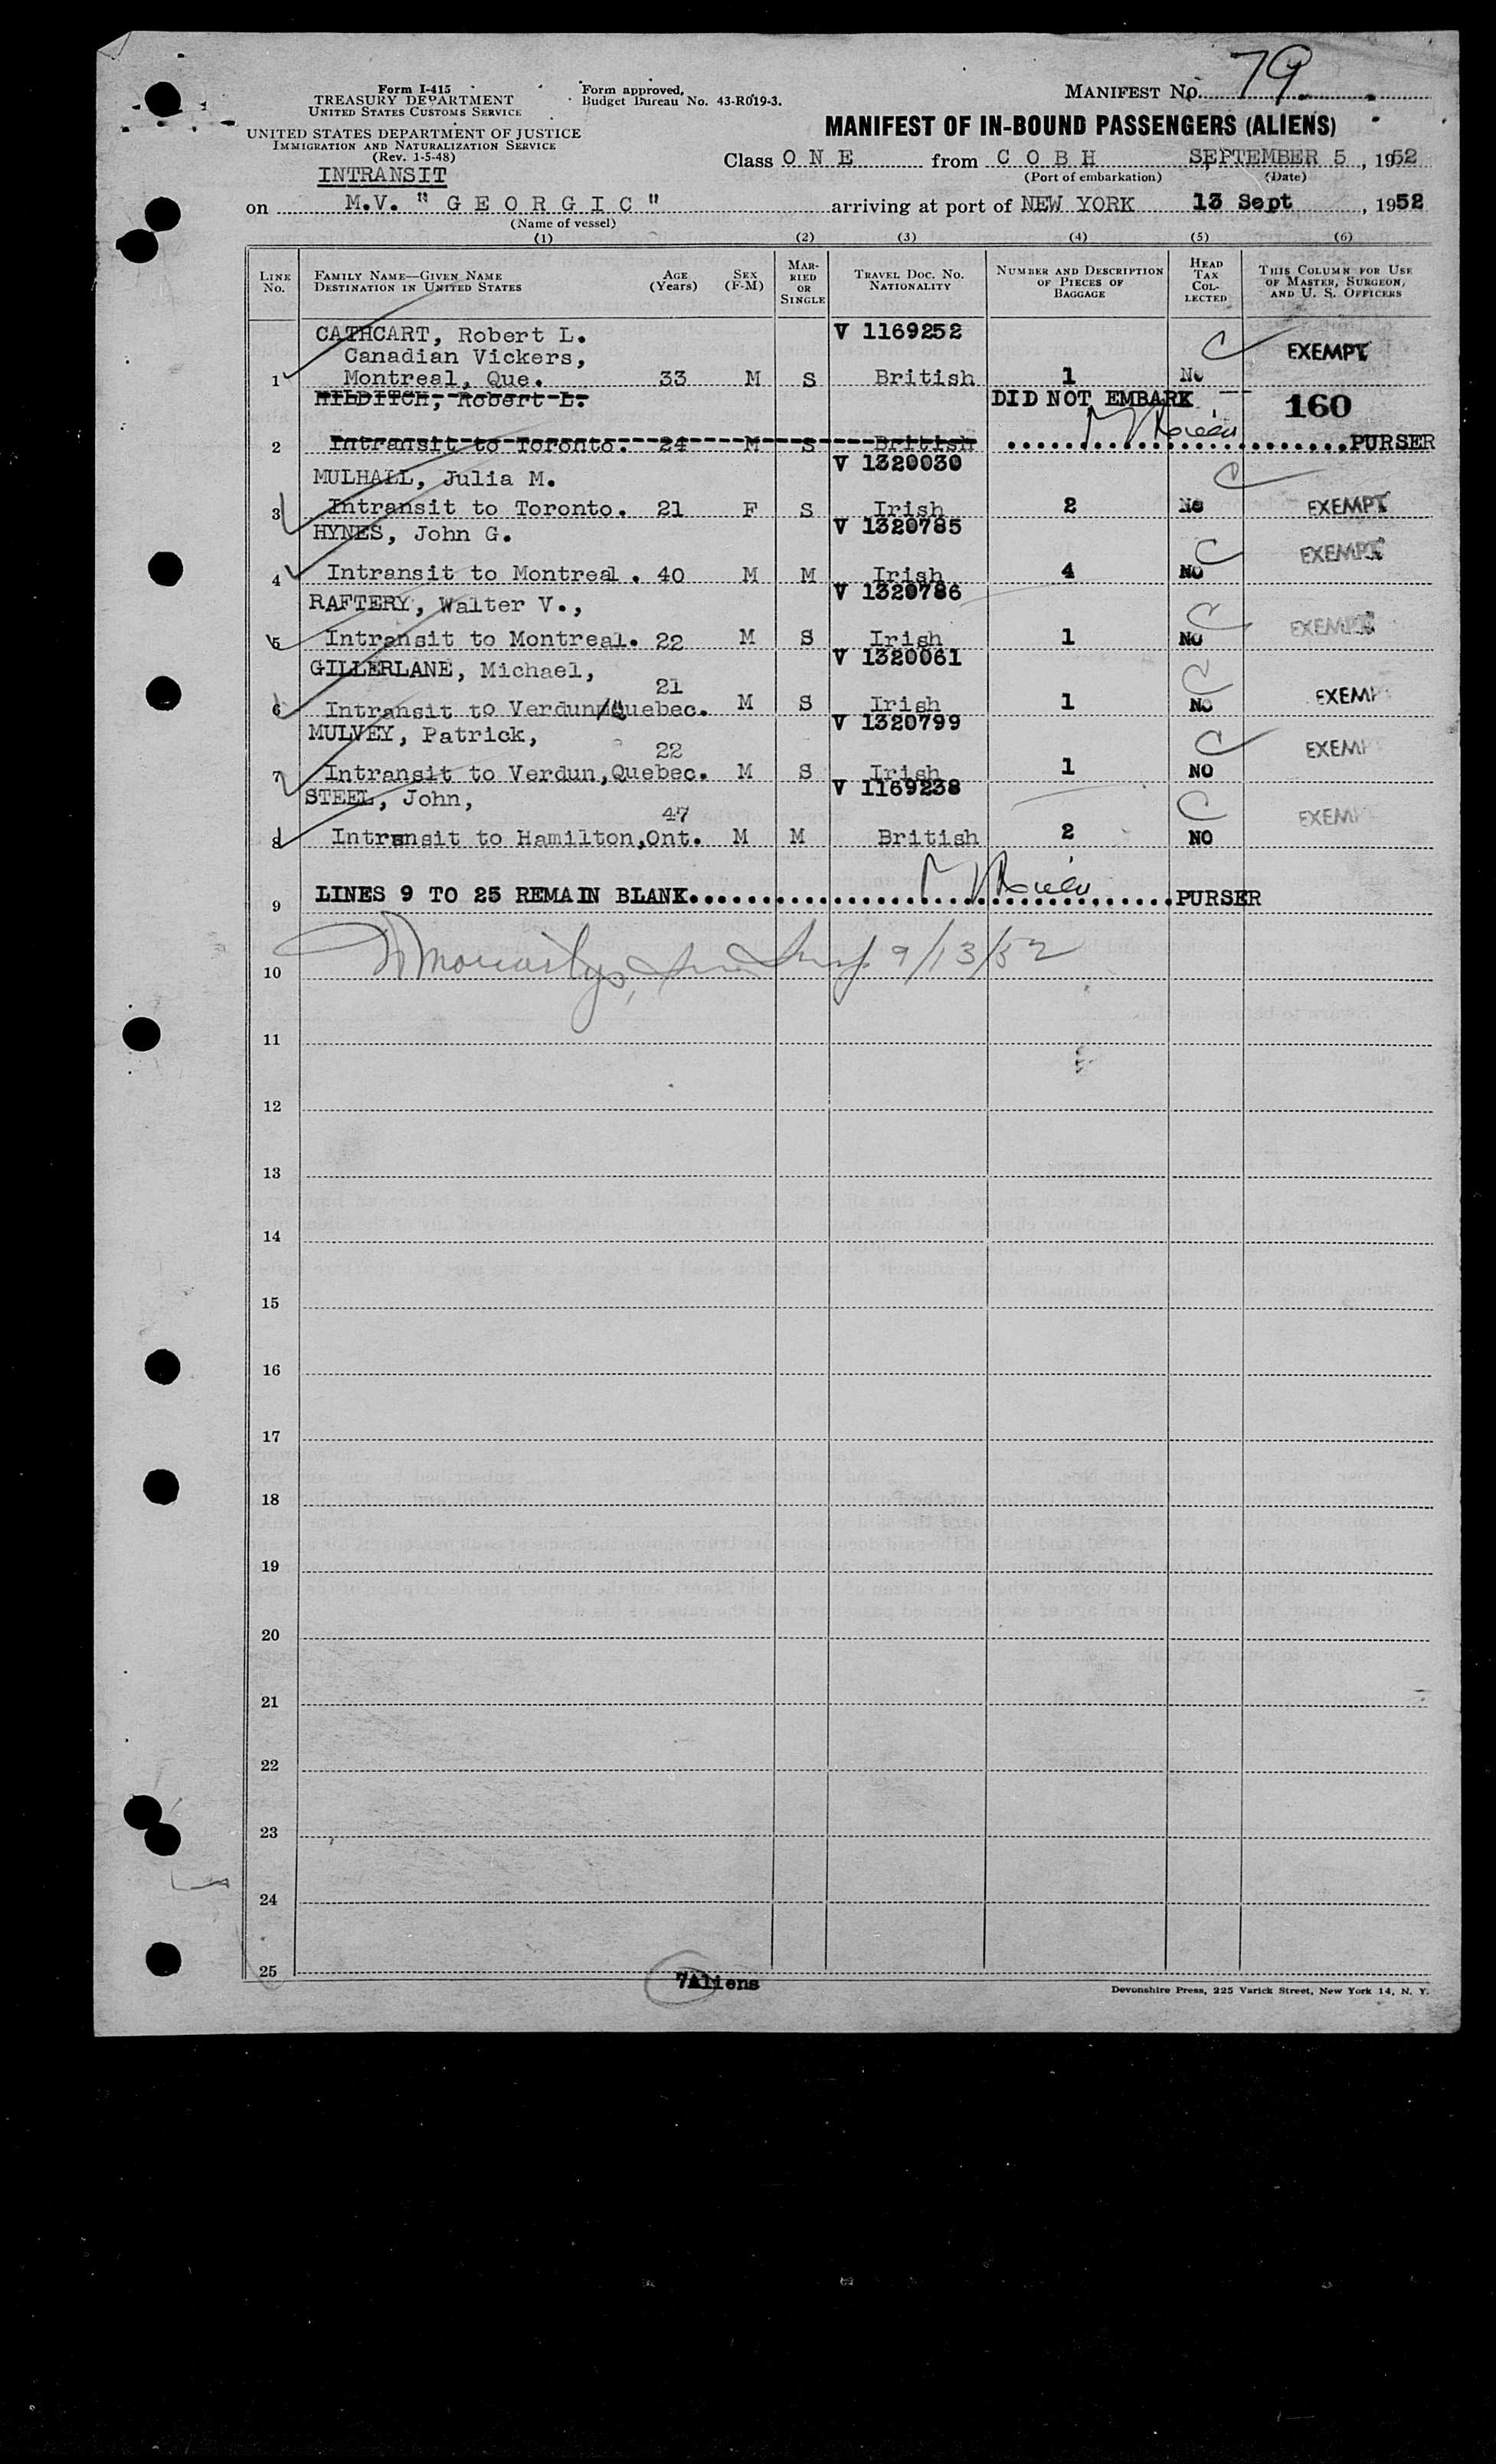 Form I-415
TREASURY DEPARTMENT
UNITED STATES CUSTOMS SERVICE
UNITED STATES DEPARTMENT OF JUSTICE
IMMIGRATION AND NATURALIZATION SERVICE
(Rev. 1-5-48)
INTRANSIT
Form approved,
Budget Bureau No. 43-R019-3.
MANIFEST No. 79
MANIFEST OF IN-BOUND PASSENGERS (ALIENS)
Class O N E from C O B H SEPTEMBER 5, 1952
(Port of embarkation) (Date)
on M.V. "G E O R G I C" arriving at port of NEW YORK 13 Sept, 1952
(Name of vessel)
(1) (2) (3) (4) (5) (6)
LINE No. FAMILY NAME—GIVEN NAME DESTINATION IN UNITED STATES AGE (Years) SEX (F-M) MARRIED OR SINGLE TRAVEL DOC. No. NATIONALITY NUMBER AND DESCRIPTION OF PIECES OF BAGGAGE HEAD TAX COLLECTED THIS COLUMN FOR USE OF MASTER, SURGEON, AND U. S. OFFICERS
CATHCART, Robert L. V 1169252
Canadian Vickers, C EXEMPT
1 Montreal, Que. 33 M S British 1 No
HILDITCH, Robert L. DID NOT EMBARK 160
2 Intransit to Toronto. 24 M S British PURSER
MULHALL, Julia M. V 1320030 C
3 Intransit to Toronto. 21 F S Irish 2 No EXEMPT
HYNES, John G. V 1320785 C EXEMPT
4 Intransit to Montreal. 40 M M Irish 4 NO
RAFTERY, Walter V., V 1320786 C EXEMPT
5 Intransit to Montreal. 22 M S Irish 1 NO
GILLERLANE, Michael, V 1320061 C
21
6 Intransit to Verdun, Quebec. M S Irish 1 NO EXEMP
MULVEY, Patrick, V 1320799 C EXEMP
22
7 Intransit to Verdun,Quebec. M S Irish 1 NO
STEEL, John, V 1169238 C EXEM
47
8 Intransit to Hamilton,Ont. M M British 2 NO
9 LINES 9 TO 25 REMAIN BLANK. PURSER
10 9/13/52
11
12
13
14
15
16
17
18
19
20
21
22
23
24
25
7Aliens
Devonshire Press, 225 Varick Street, New York 14, N. Y.